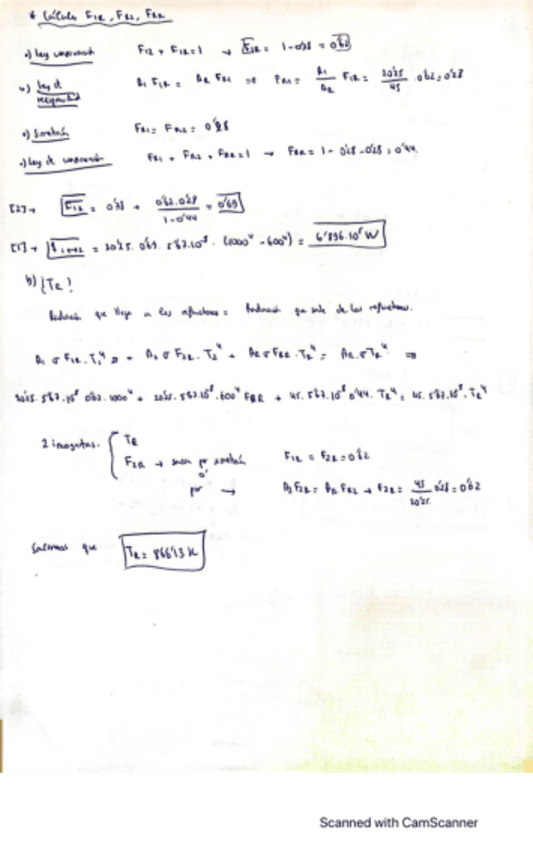 * Cálculo F1R, FR1, FRR
a) Ley conservación F12 + F1R = 1 → F1R = 1 - 0'38 = 0'62
b) Ley de reciprocidad A1 F1R = AR FR1 => FR1 = A1/AR F1R = 20'25/45 · 0'62 = 0'28
c) Simetría FR1 = FR2 = 0'28
d) Ley de conservación FR1 + FR2 + FRR = 1 → FRR = 1 - 0'28 - 0'28 = 0'44
[2] → F12 = 0'38 + 0'62·0'28/1-0'44 = 0'69
[1] → = 20'25 · 0'69 · 5'67·10^-8 · (1000^4 - 600^4) = 6'896·10^5 W
b) ¿TR?
Radiación que llega a los refractarios = Radiación que sale de los refractarios.
A1 σ F1R · T1^4 + A2 σ F2R · T2^4 + AR σ FRR · TR^4 = AR σ TR^4 =>
20'25 · 5'67·10^-8 · 0'62 · 1000^4 + 20'25 · 5'67·10^-8 · 600^4 F2R + 45 · 5'67·10^-8 · 0'44 · TR^4 = 45 · 5'67·10^-8 · TR^4
2 incognitas. { TR
F2R → sacar por simetría F1R = F2R = 0'62
o
por → A2 F2R = AR FR2 → F2R = 45/20'25 · 0'28 = 0'62
Sacamos que TR = 866'13 K
Scanned with CamScanner